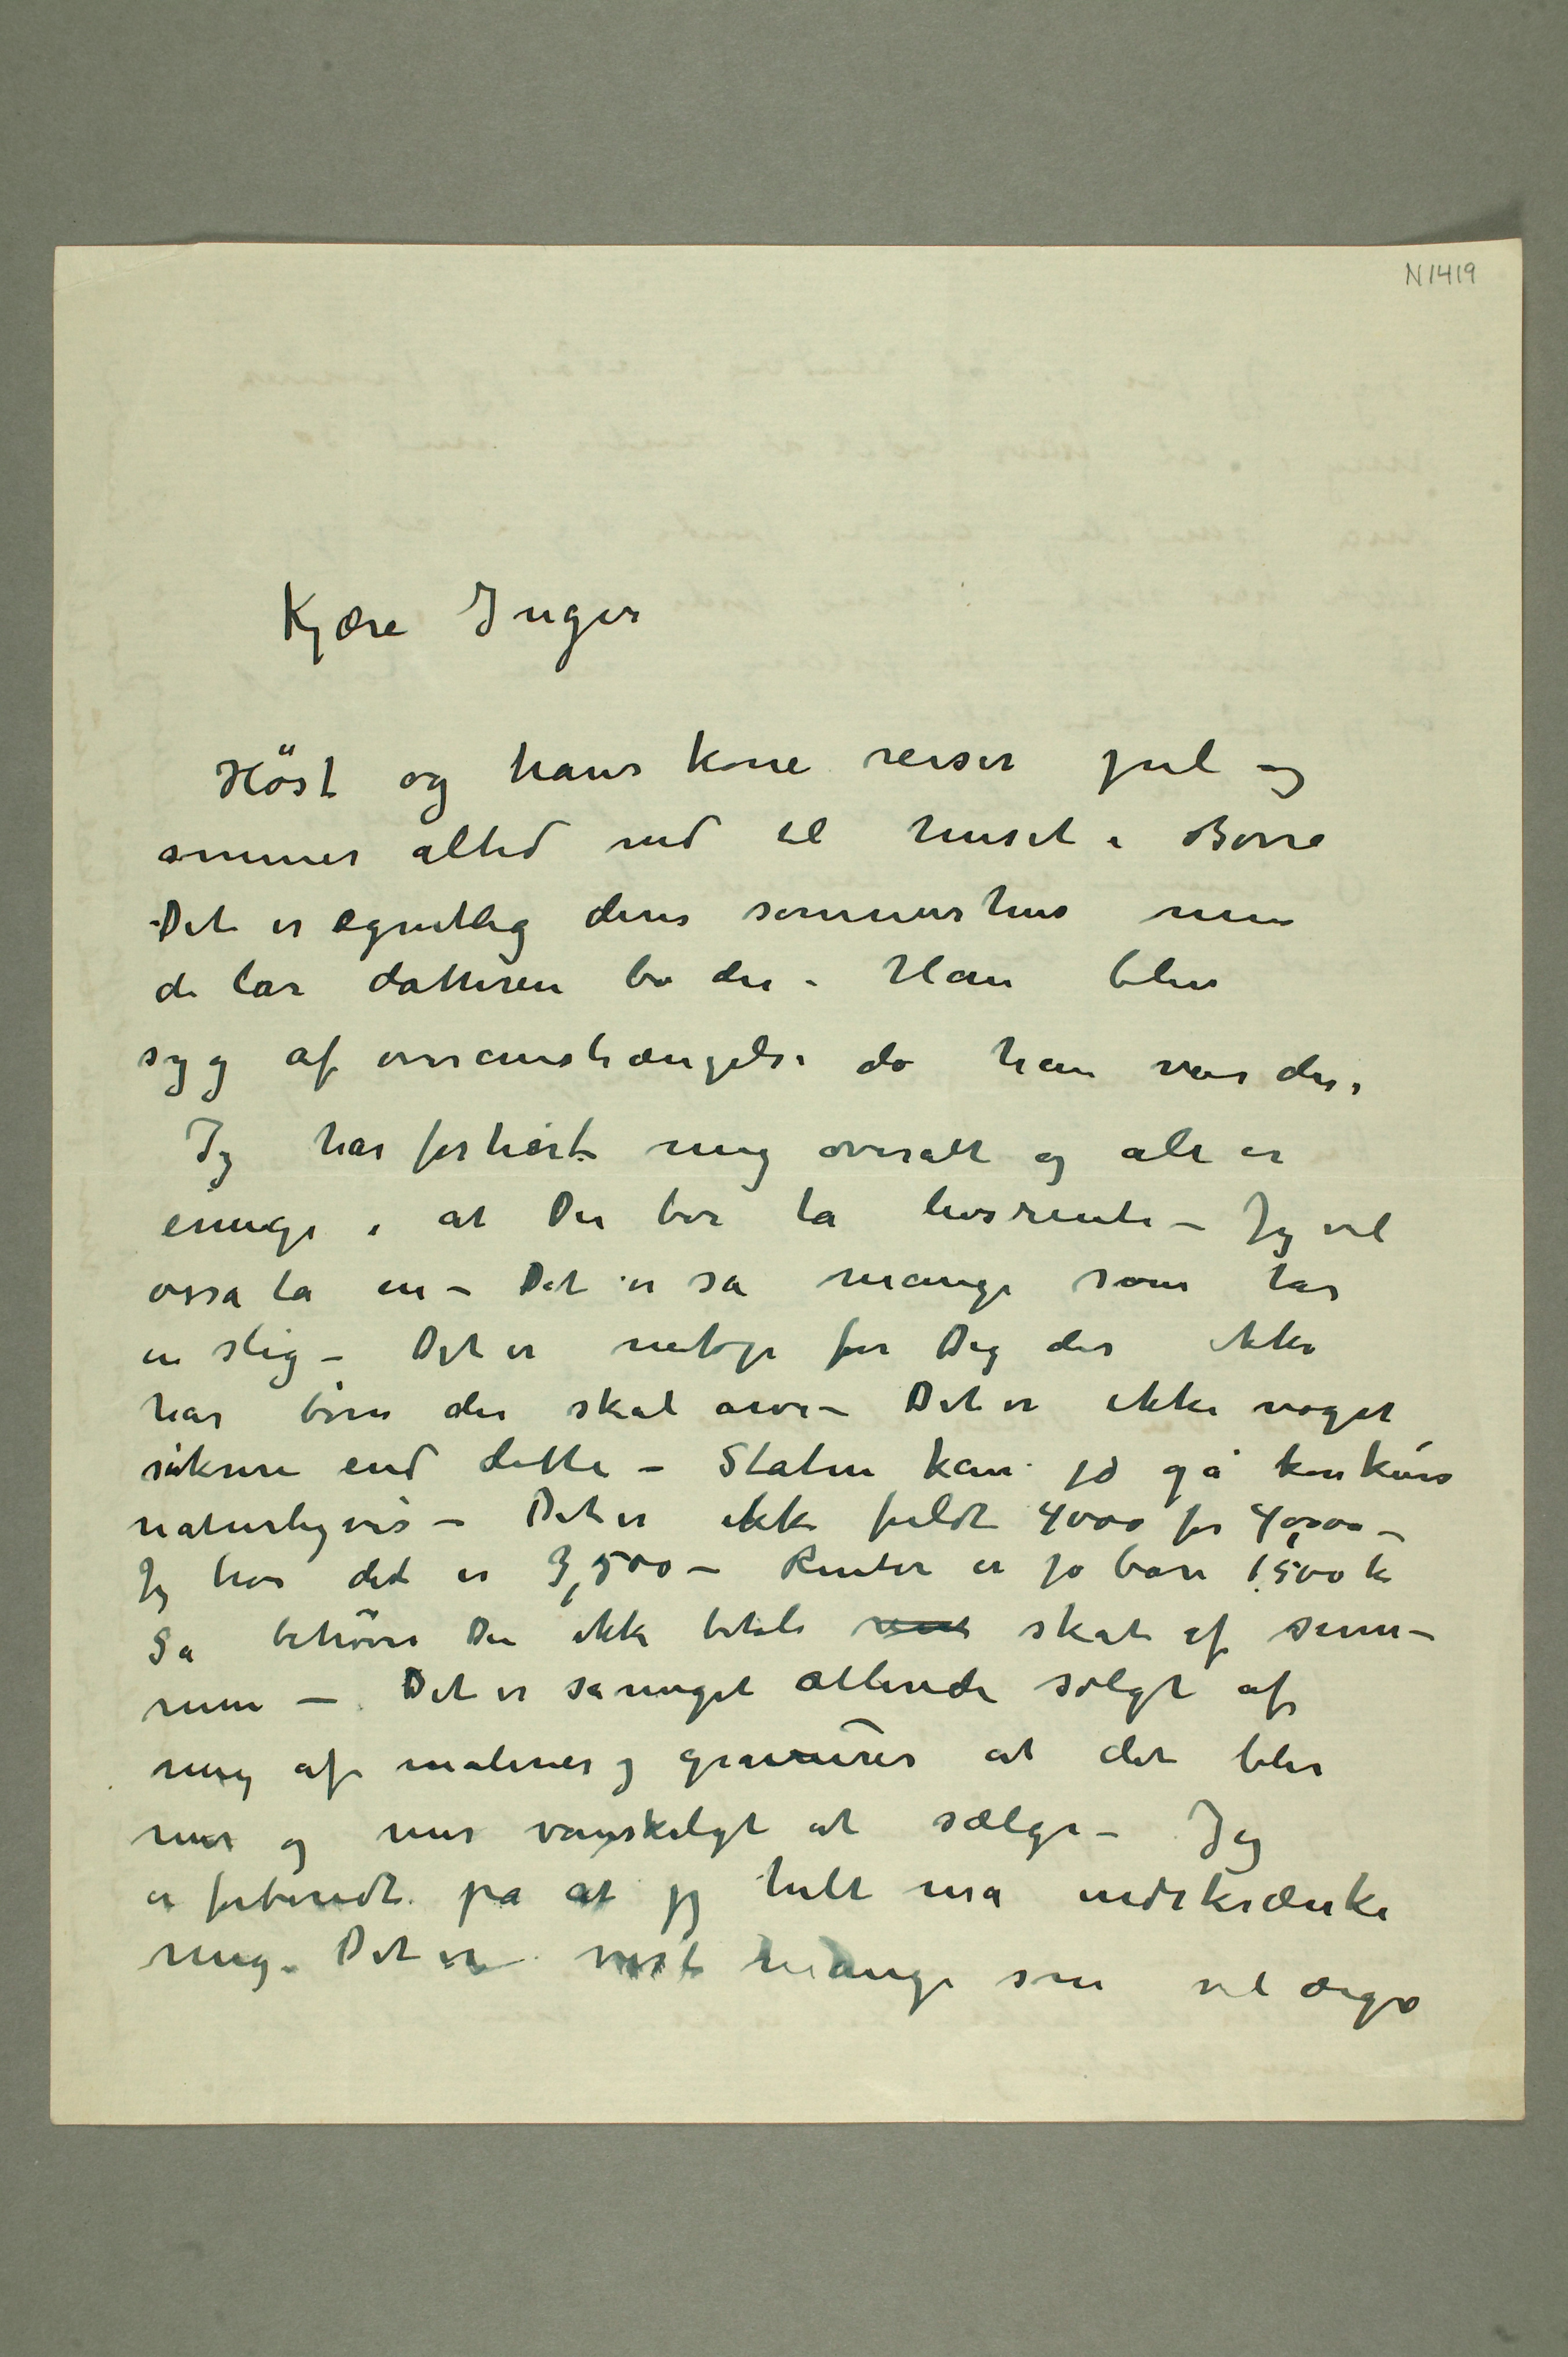 N1419
Kjære Inger
Höst og hans kone reiser jul og
sommer altid ned til huset i Borre
Det er egentlig deres sommerhus men
de lar datteren bo der – Han blev
syg af overanstrængelse da han var der.
Jeg har forhørt mig overalt og alle er
enige i at Du bør ta livsrente – Jeg vil
osså ta en – Det er så mange som tar
en slig – Det er netop for Dig der ikke
har børn der skal arve – Det er ikke noget
sikrere end dette – Staten kan jo gå konkurs
naturligvis – Det er ikke fuldt 4000 for 40,000 –
Jeg tror det er 3,500 – Renter er jo bare 1.500 k
Så behøver Du ikke betale skat af sum-
men – Det er så meget allerede solgt af
mig af malerier og gravurer at det blir
mer og mer vanskeligt at sælge – Jeg
er forberedt på at jeg helt må indskrænke
mig. Det er vist mange som vil ærgre